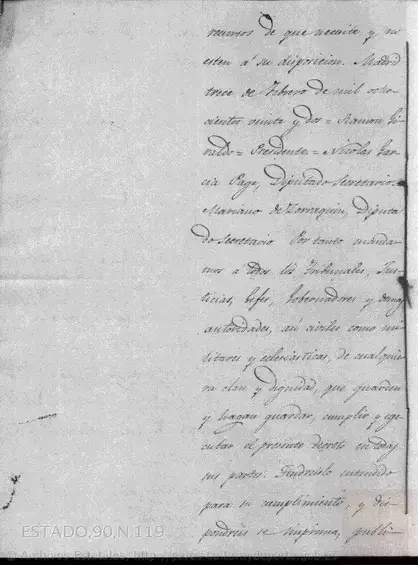 recursos de que necesite y no
esten á su disposicion. Madrid
trece de Febrero de mil ocho-
cientos veinte y dos = Ramon Gi-
raldo = Presidente = Nicolas Gar-
cia Page, Diputado Secretario =
Mariano de Zorraquin, Diputa-
do Secretario Por tanto manda-
mos a todos los Tribunales, Jus-
ticias, Gefes, Gobernadores y demas
autoridades, asi civiles como mi-
litares y eclesiasticas, de cualquie-
ra clase y dignidad, que guarden
y hagan guardar, cumplir y ege-
cutar el presente decreto en todas
sus partes. Tendreislo entendido
para su cumplimiento, y dis-
pondreis se imprima, publi-
ESTADO,90,N.119